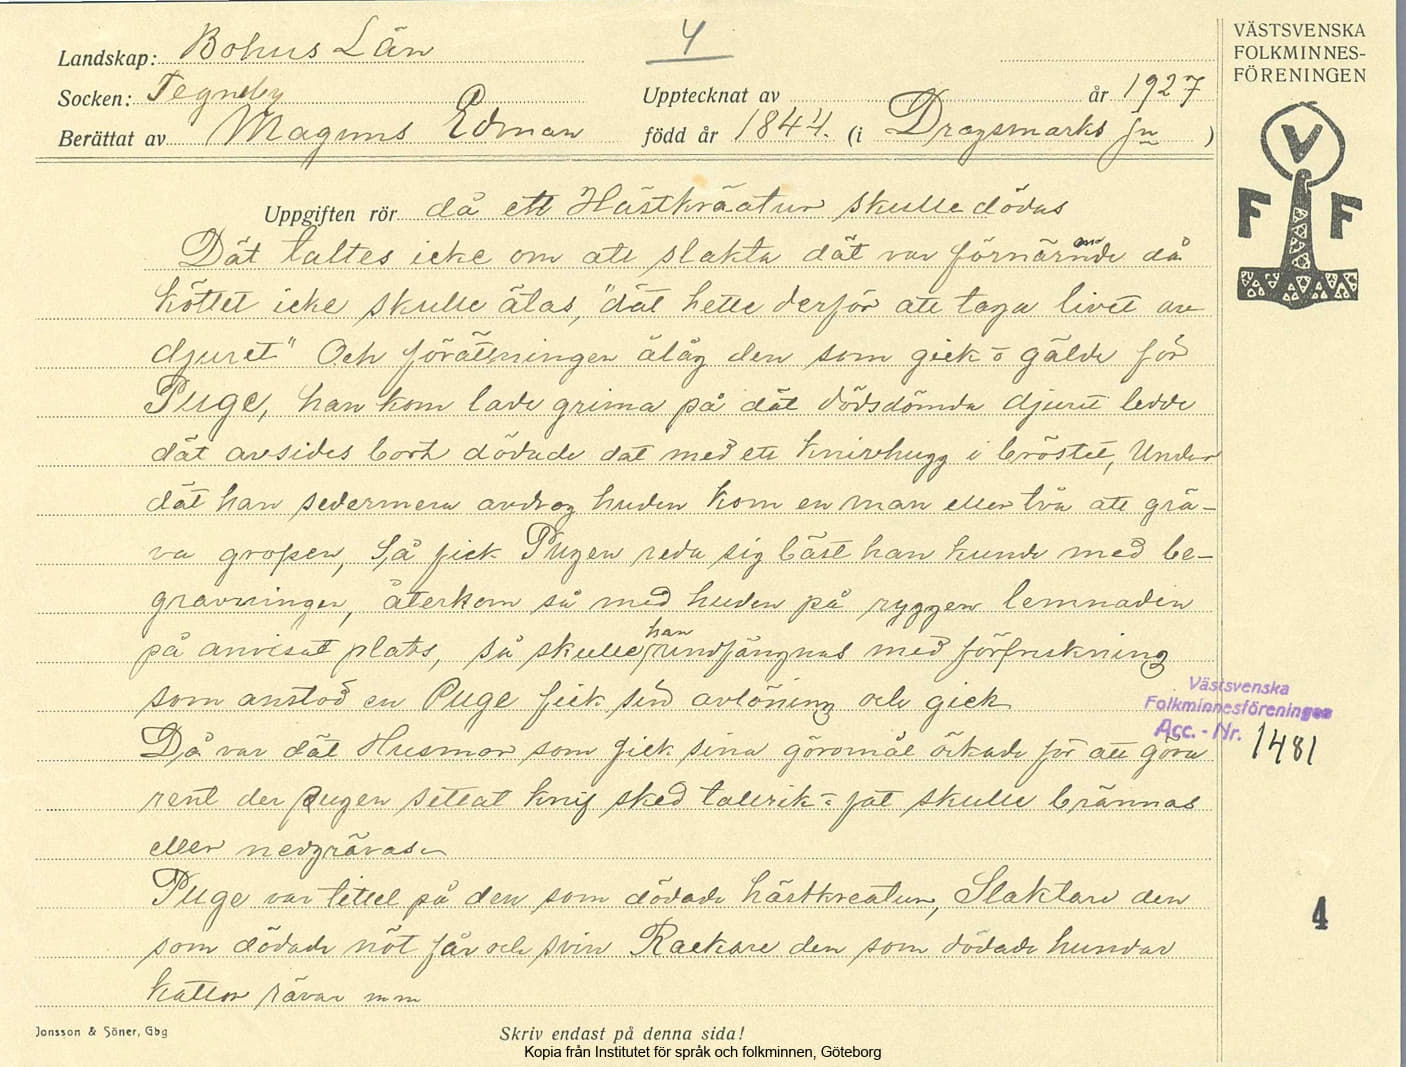 Landskap: Bohus Län
4
Socken: Tegneby
Upptecknat av år 1927
Berättat av Magnus Edman född år 1844. (i Dragsmarks sn )
VÄSTSVENSKA
FOLKMINNES-
FÖRENINGEN
V
F F
Uppgiften rör då ett Hästkräatur skulle dödas
Dät taltes icke om att slakta dät var förnärmande då
köttet icke skulle ätas, "dät hette derför att taga livet av
djuret" Och förättningen ålåg den som gick o gälde för
Puge, han kom lade grima på dät dödsdömda djuret ledde
dät avsides bort dödade dät med ett knivhugg i bröstet, Under
dät han sedermera avdrog huden kom en man eller två att grä-
va gropen, Så fick Pugen reda sig bäst han kunde med be-
gravningen, återkom så med huden på ryggen lemnaden
på anvisat plats, så skulle han undfängnas med förfriskning
som anstod en Puge fick sin avlöning och gick
Då var dät Husmor som fick sina göromål ökade för att göra
rent der Pugen settat knif sked tallrik = fat skulle brännas
eller nedgrävas
Puge var tittel på den som dödade hästkreatur, Slaktare den
som dödade nöt får och svin Rackare den som dödade hundar
kattor rävar m m
Västsvenska
Folkminnesföreningen
Acc. - Nr. 1481
4
Jonsson & Söner, Gbg
Skriv endast på denna sida!
Kopia från Institutet för språk och folkminnen, Göteborg